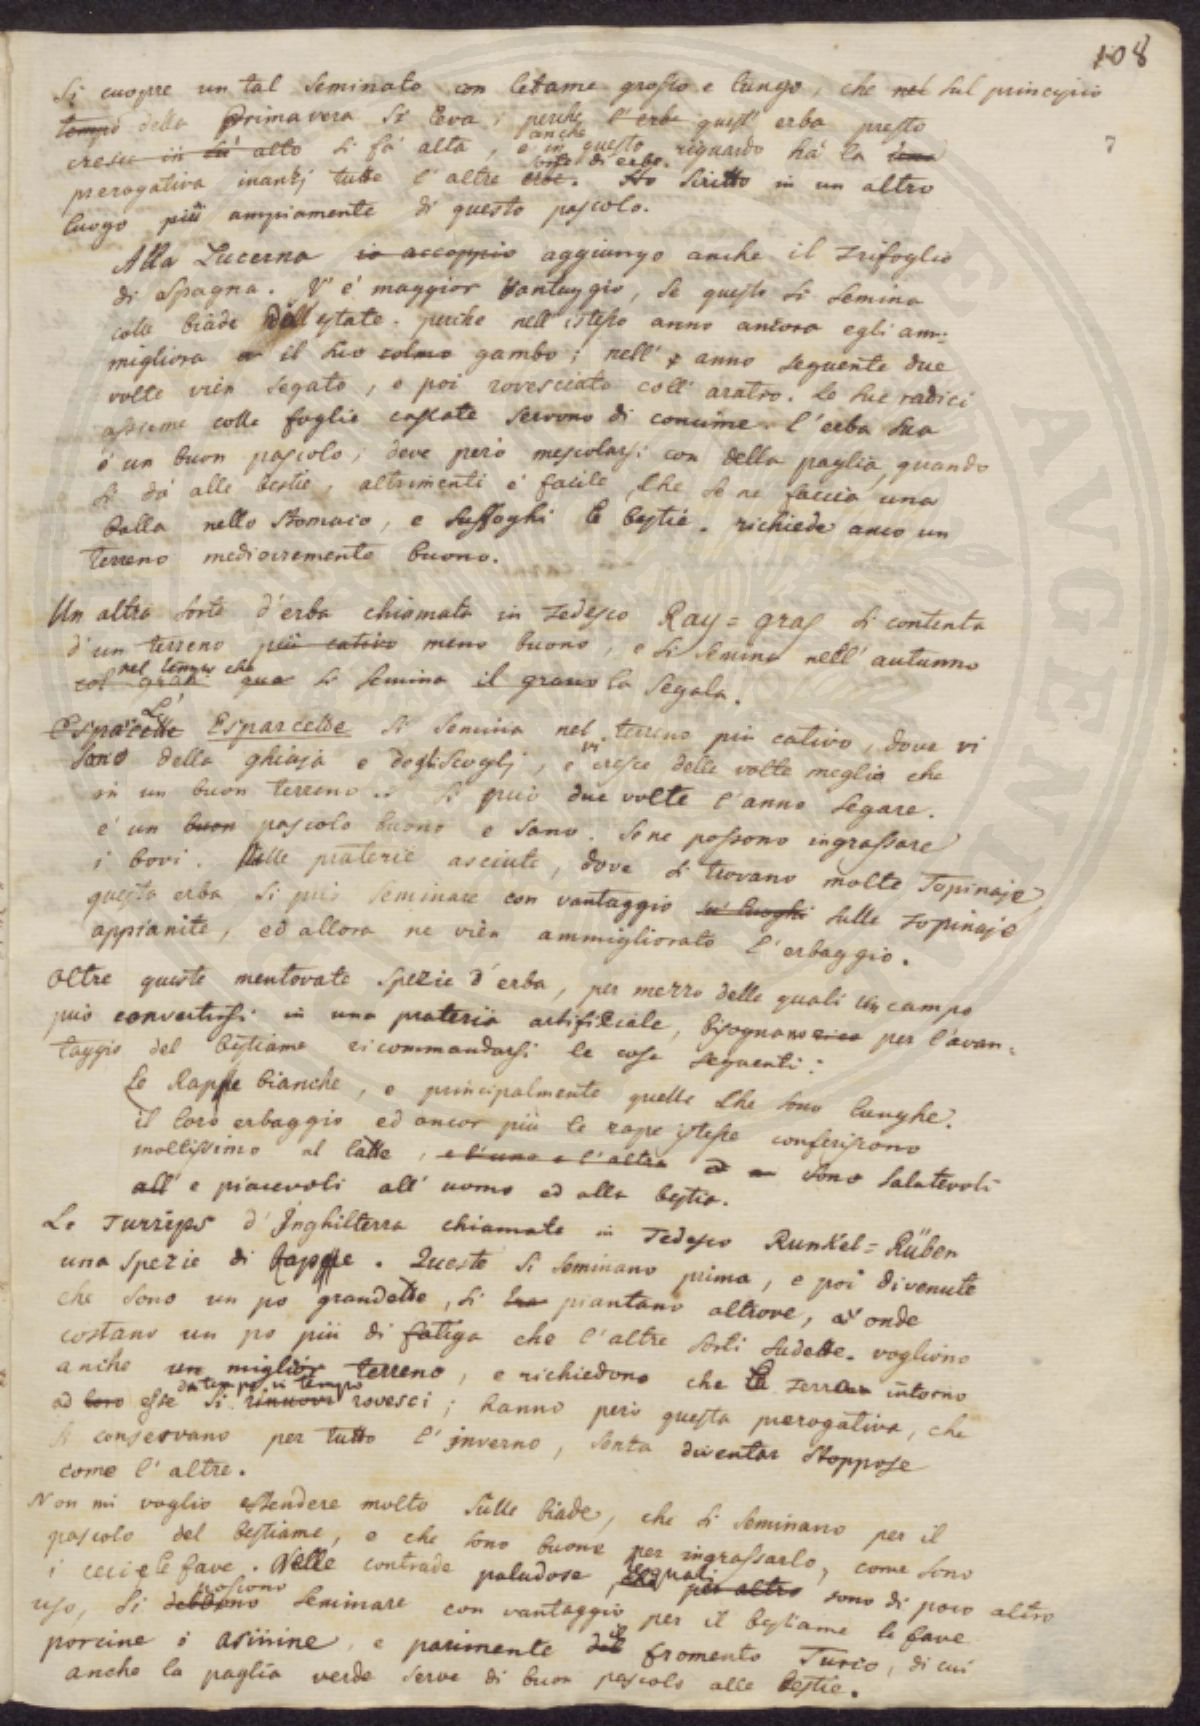 108
Si cuopre un tal seminato con letame grosso e lungo, che nel sul principio
tempo della Primavera si leva; perche l'erba quest' erba presto
cresce in su' alto si fà alta, e anche in questo riguardo hà la sua
prerogativa inanzj tutte l'altre erbe. sorte di erbe. Ho scritto in un altro
luogo più ampiamente di questo pascolo.
Alla Lucerna io accoppio aggiungo anche il Trifoglio
di Spagna. V' é maggior vantaggio, se questo si semina
colle biade dell'estate. perche nell'istesso anno ancora egli am=
migliora il suo colmo gambo; nell' anno seguente due
volte vien segato, e poi rovesciato coll'aratro. le sue radici
assieme colle foglie cascate servono di concime. l'erba sua
é un buon pascolo; deve però mescolarsi con della paglia, quando
si dà alle bestie, altrimenti é facile, che se ne faccia una
balla nello stomaco, e suffoghi le bestie. richiede anco un
terreno mediocremente buono.
Un altra sorte d'erba chiamata in Tedesco Ray=gras si contenta
d'un terreno più cativo meno buono, e si semina nell'autunno
col gran nel tempo che si semina il grano la segala.
Esparcette L' Esparcette si semina nel terreno più cativo, dove vi
sono della ghiaja e degli Scoglj, e vi cresce delle volte meglio che
in un buon terreno. Si può due volte l'anno segare.
é un buon pascolo buono e sano. Se ne possono ingrassare
i bovi. Nelle praterie asciute, dove si trovano molte Topinaje
questa erba si può seminare con vantaggio su' luoghi sulle Topinaje
appianite, ed allora ne vien ammigliorato l'erbaggio.
Oltre queste mentovate spezie d'erba, per mezzo delle quali un campo
può convertirsi in una prateria artifiziale, bisognano per l'avan=
taggio del bestiame ricommandarsi le cose seguenti:
Le Rappe bianche, e principalmente quelle che sono lunghe.
il loro erbaggio ed ancor più le rape istesse conferiscono
moltissimo al latte, e l'una e l'altra sono salutevoli
all' e piacevoli all'uomo ed alla bestia.
Le Turrips d'Inghilterra chiamate in Tedesco Runkel=Rüben
una spezie di Rappe. Queste si seminano prima, e poi divenute
che sono un po grandette, si piantano altrove, onde
costano un po più di fatiga che l'altre sorti sudette. vogliono
anche un miglior terreno, e richiedono che la terra intorno
ad loro esse da tempo in tempo si rinuovi rovesci; hanno però questa prerogativa, che
si conservano per tutto l'inverno, senza diventar stoppose
come l'altre.
Non mi voglio estendere molto sulle biade, che si seminano per il
pascolo del bestiame, e che sono buone per ingrassarlo, come sono
i ceci e le fave. Nelle contrade paludose, le quali per altro sono di poco altro
uso, si debbono possono seminare con vantaggio per il bestiame le fave
porcine ó asinine, e parimente del il fromento Turco, di cui
anche la paglia verde serve di buon pascolo alle bestie.